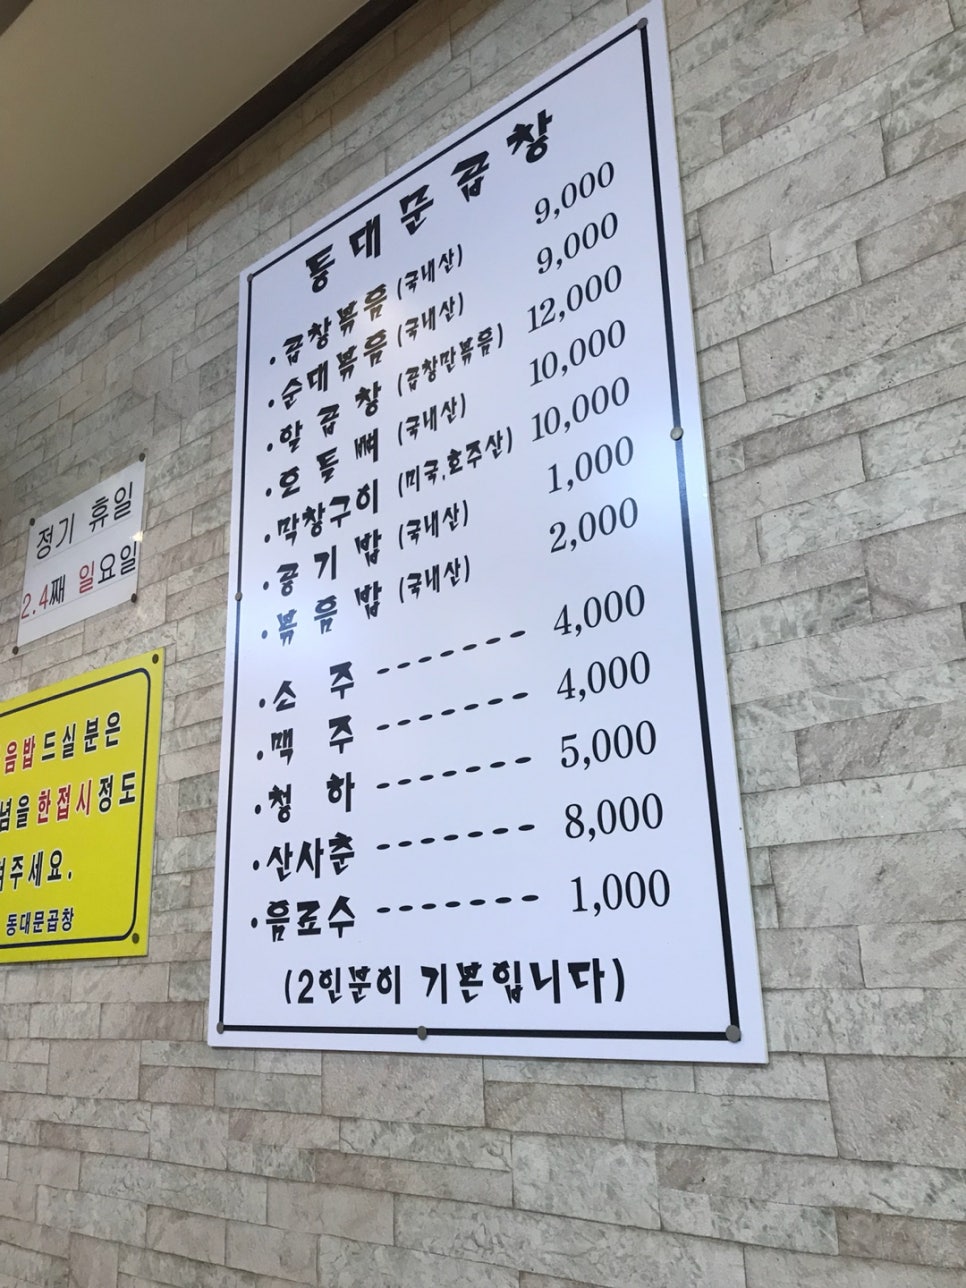 동대문곱창
·곱창볶음(국내산) 9,000
·순대볶음(국내산) 9,000
·알곱창(곱창만볶음) 12,000
·오돌뼈(국내산) 10,000
·막창구이(미국,호주산) 10,000
·공기밥(국내산) 1,000
·볶음밥(국내산) 2,000
·소주------- 4,000
·맥주------- 4,000
·청하------- 5,000
·산사춘------- 8,000
·음료수------- 1,000
(2인분이 기본입니다)
정기 휴일
2.4째 일요일
음밥 드실분은
념을 한접시 정도
겨주세요.
동대문곱창